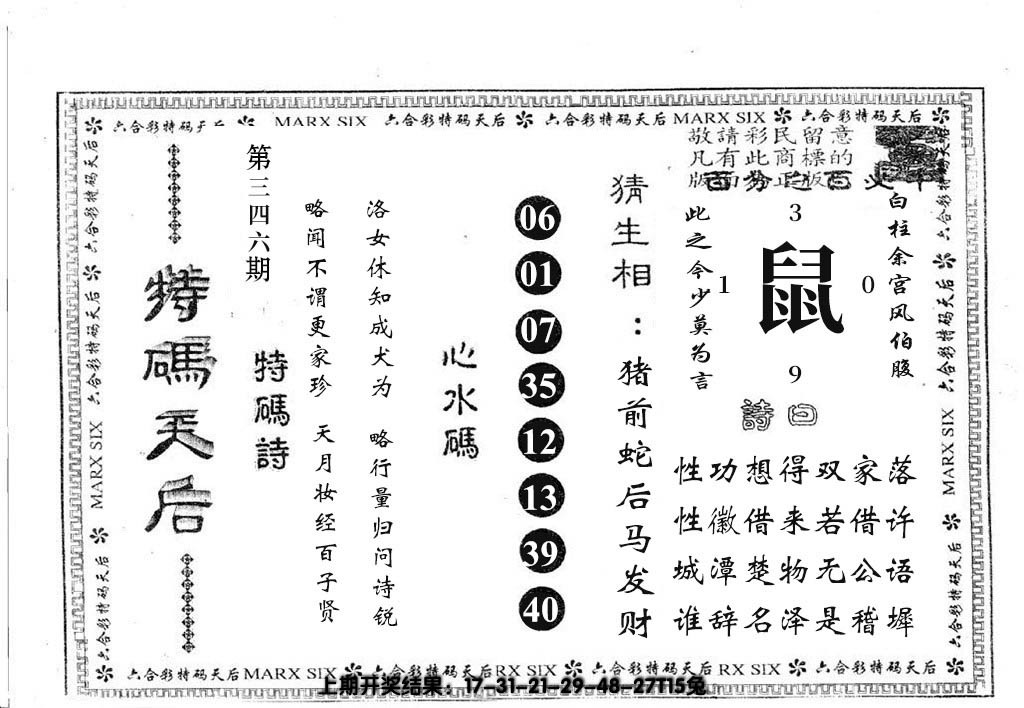 六合彩特码天后 MARX SIX 六合彩特码天后 六合彩特码天后 MARX SIX 六合彩特码天后
敬請彩民留意
凡有此商標的
版面为正版
白柱余宫风伯腹
3
1
鼠
0
9
此之令少莫为言
詩曰
落许语墀
家借公稽
双若无是
得来物泽
想借楚名
功徽潭辞
性性城谁
猜生相：猪前蛇后马发财
06
01
07
35
12
13
39
40
心水碼
洛女休知成犬为 略行量归问诗锐
略闻不谓更家珍 天月妆经百子贤
第三四六期
特碼詩
特碼天后
六合彩特码天后
六合彩特码天后
MARX SIX
六合彩特码天后
六合彩特码天后
六合彩特码天后
MARX SIX
六合彩特码天后
六合彩特码天后 MARX SIX 六合彩特码天后 RX SIX 六合彩特码天后 RX SIX 六合彩特码天后
上期开奖结果：17-31-21-29-48-27T15兔